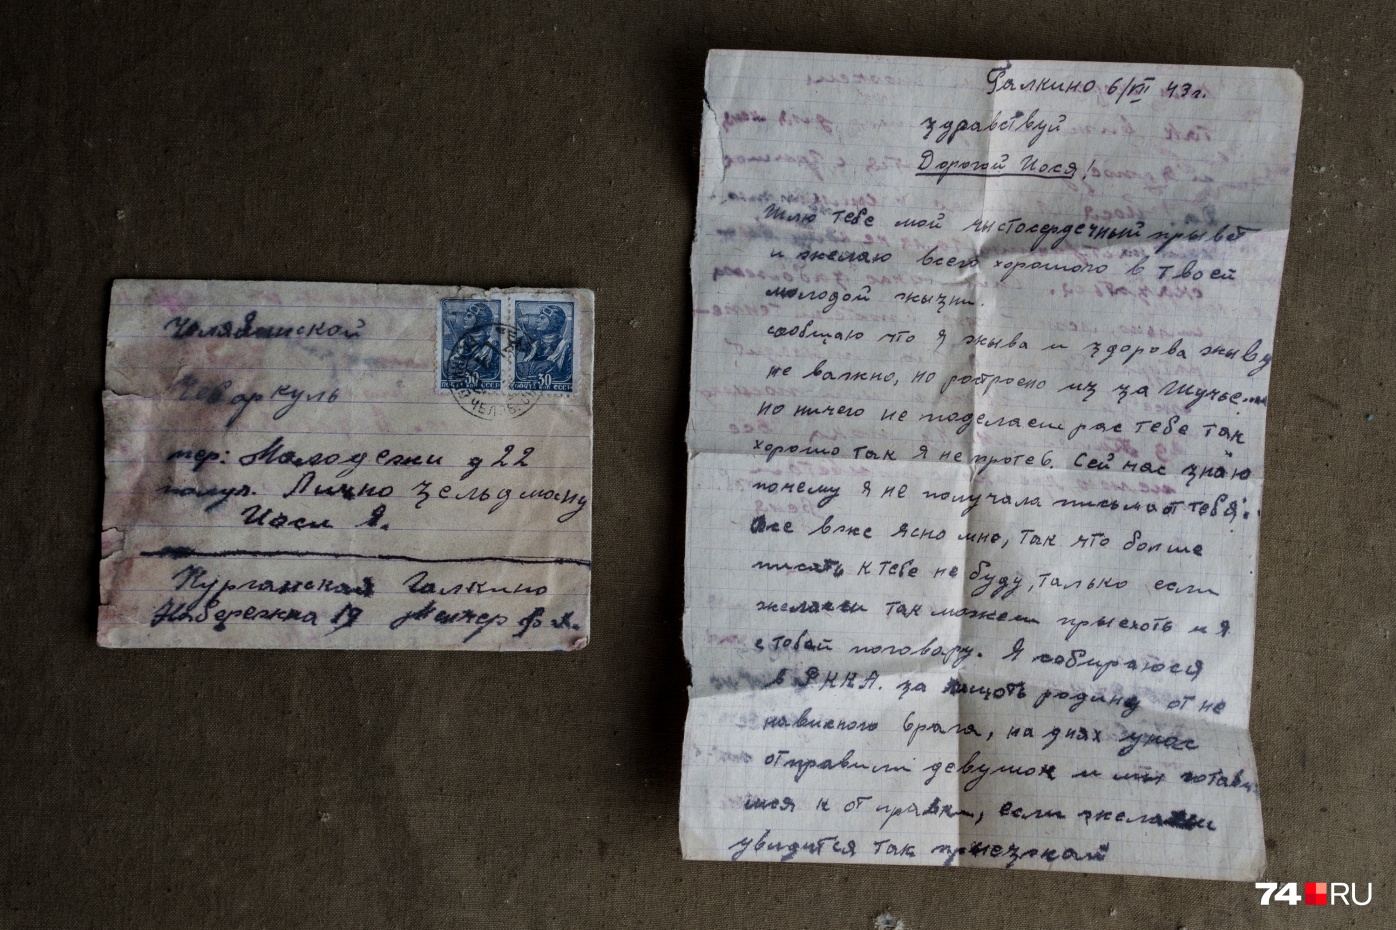 Челябинской
Чебаркуль
пер: Молодежи д 22
получ. Лично Зельдману
Иоси Я.
Курганская Галкино
Набережна 19
30 30
ПОЧТА СССР ПОЧТА СССР
Галкино 6/VII 43 г.
Здравствуй
Дорогой Иося!
Шлю тебе мой чистосердечный прывет
и желаю всего хорошого в твоей
молодой жызни.
сообщаю что я жыва и здорова жыву
не важно, но ростроено из за
но ничего не поделаеш рас тебе так
хорошо так я не протев. Сей час знаю
почему я не получала письма от тебя.
все вже ясно мне, так что больше
писать к тебе не буду, талько если
желаеш так можеш прыехоть и я
с тобой поговору. Я собираюся
в РККА. за щищоть родину от не
нависного врага, на днях унас
отправили девушок и мы готави
мся к от правки, если желаеш
увидится так прыезжай
74.RU